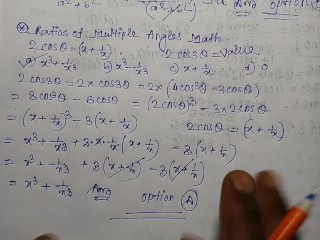 Ans option (
(*) Ratios of Multiple Angles Math
2cosθ = (x + 1/x), 2cos3θ = value
a) x³ + 1/x³ b) x³ - 1/x³ c) x + 1/x d) 0
2cos3θ = 2 × cos3θ = 2 × (4cos³θ - 3cosθ)
= 8cos³θ - 6cosθ = (2cosθ)³ - 3 × 2cosθ
= (x + 1/x)³ - 3(x + 1/x) 2cosθ = (x + 1/x)
= x³ + 1/x³ + 3·x·1/x(x + 1/x) - 3(x + 1/x)
= x³ + 1/x³ + 3(x + 1/x) - 3(x + 1/x)
= x³ + 1/x³ Ans option (A)